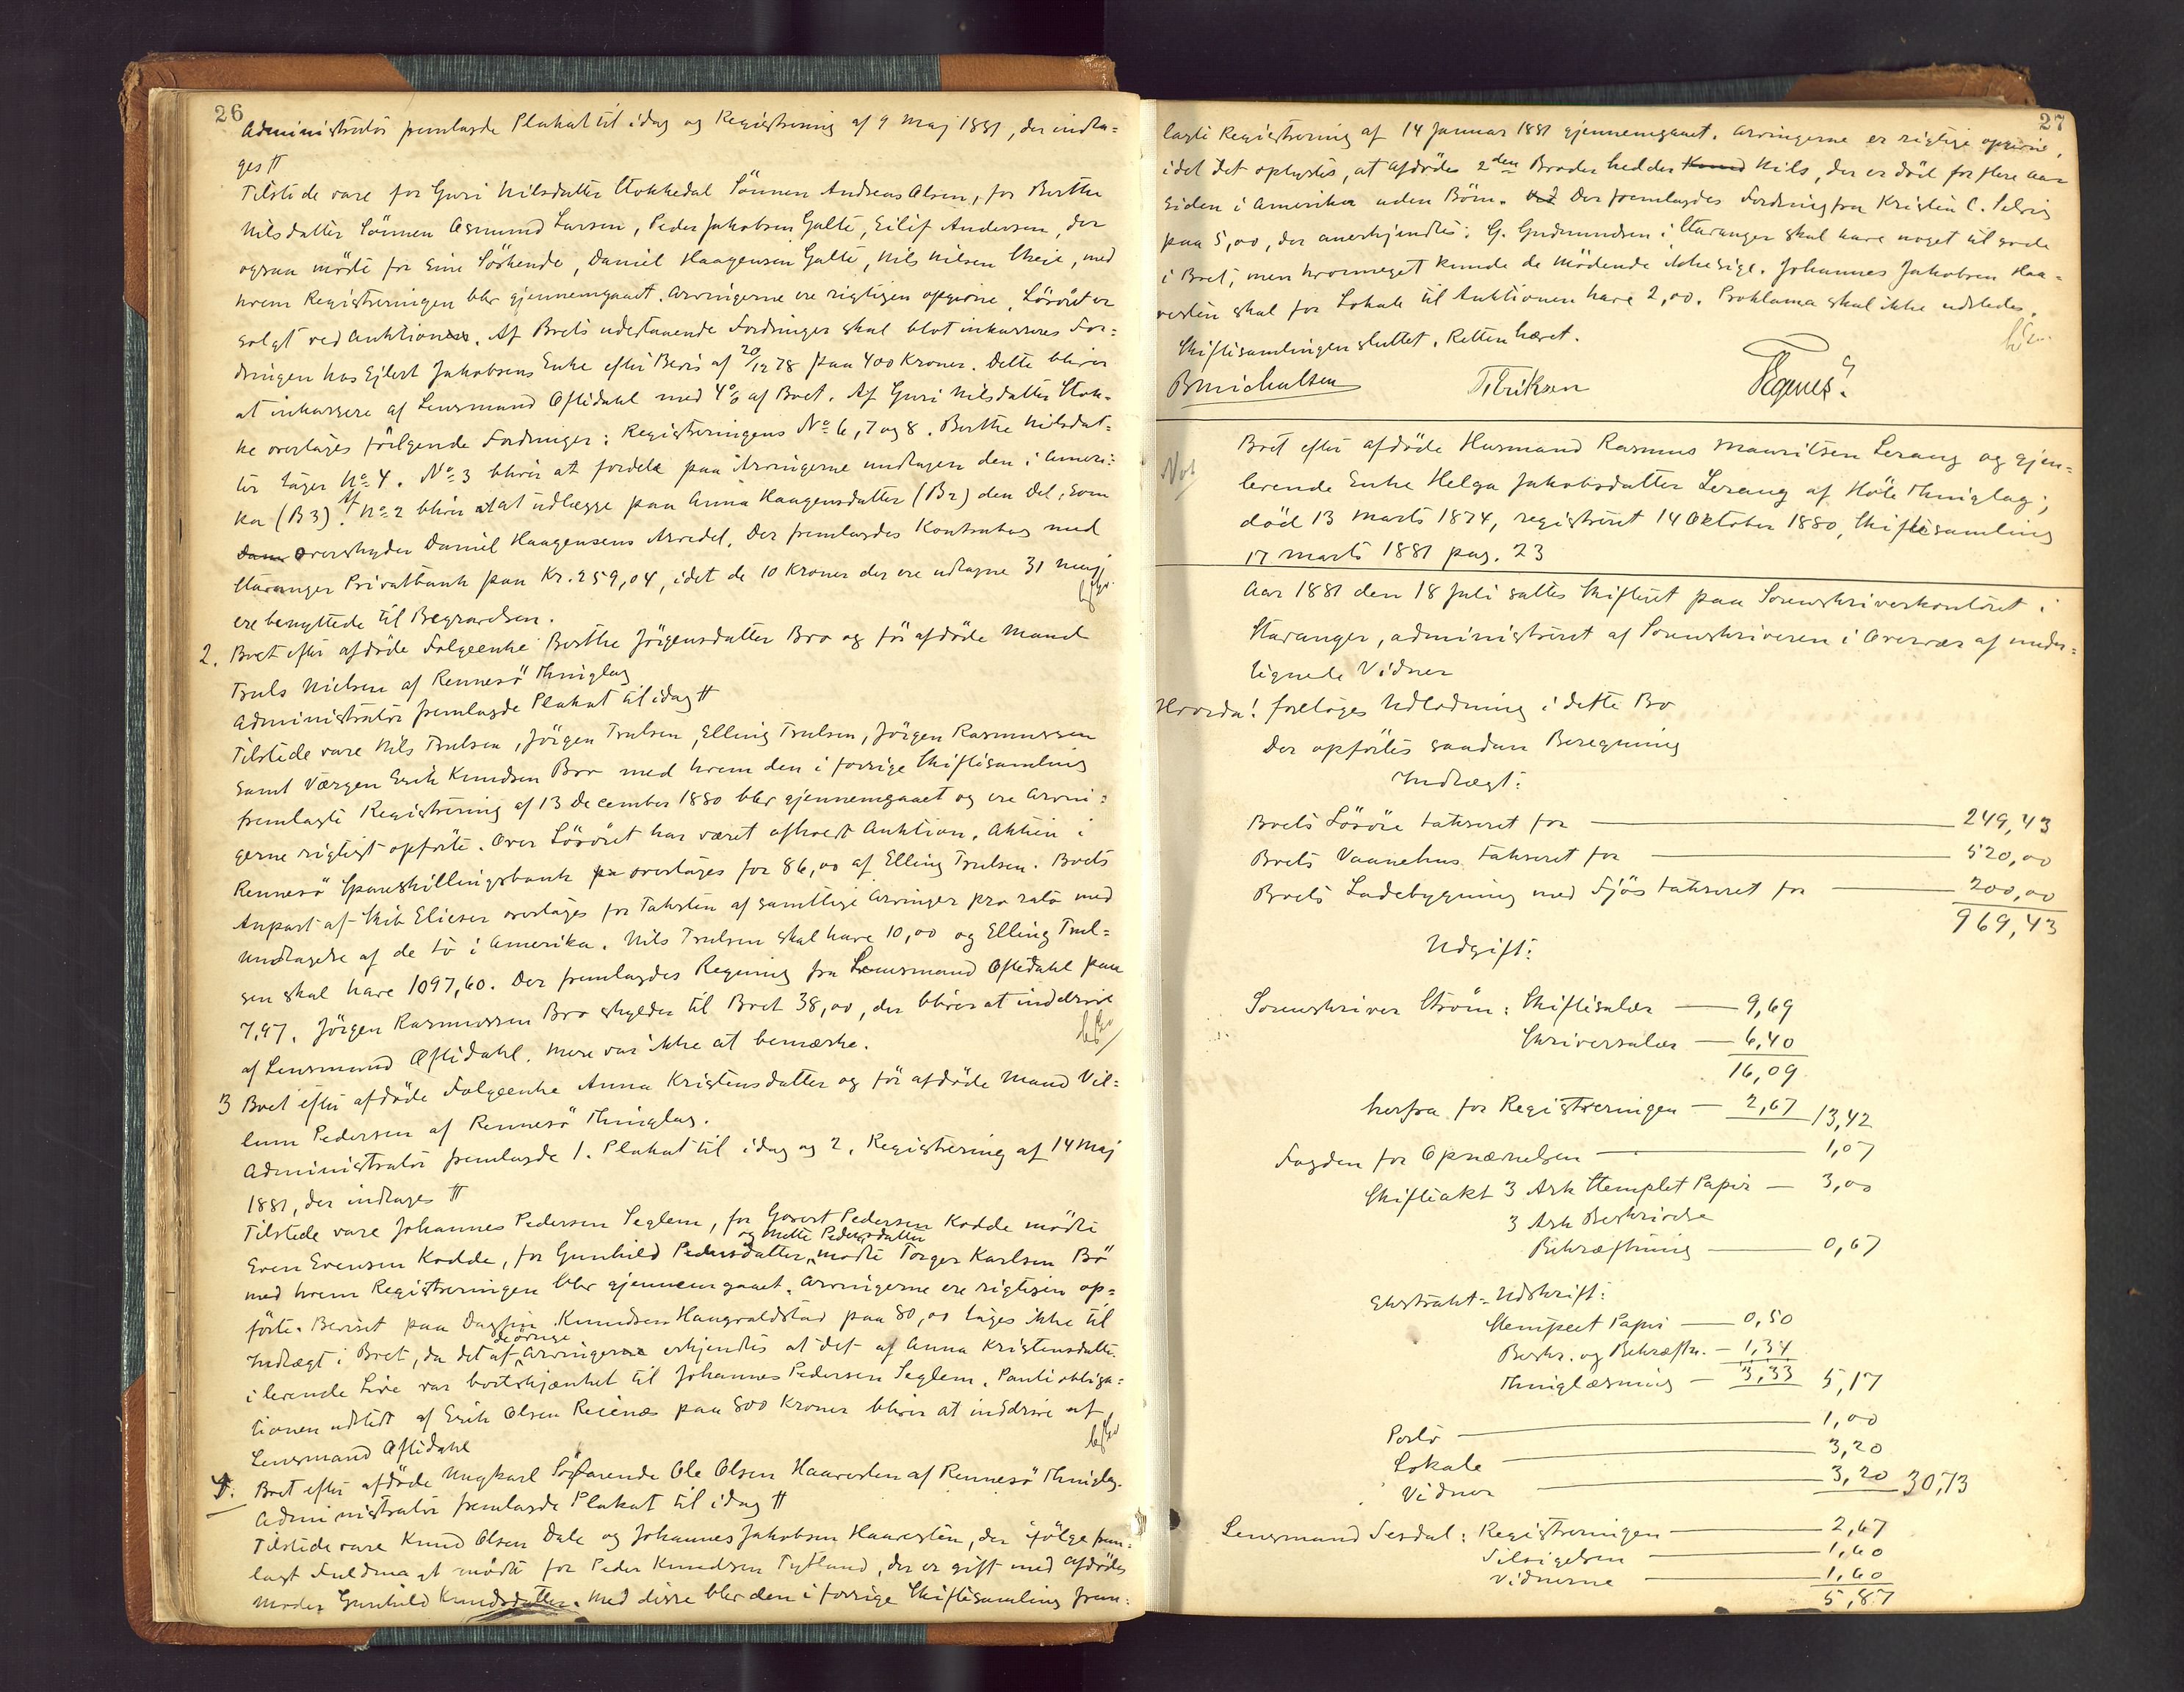 26
Administrator fremlagde Plakat til idag og Registrering af 9 Maj 1881, der indta=
ges #
Tilstede vare for Guri Nilsdatter Stokkedal Sönnen Andreas Olsen, for Berthe
Nilsdatter Sönnen Asmund Larsen, Peder Jakobsen Galte, Eilif Andersen, der
ogsaa mödte for sine Söskende, Daniel Haagensen Galte, Nils Nilsen, med
hvem Registreringen blev gjennemgaaet. Arvingerne ere rigtigen opgivne. Lösöret er
solgt ved Auktion. Af Boets udestaaende Fordringer skal blot inkasseres For=
dringen hos Ejlert Jakobsens Enke efter Bevis af 20/12 78 paa 400 Kroner. Dette bliver
at inkassere af Lensmand Oftedahl med 4% af Boet. Af Guri Nilsdatter Stok=
ke overtages fölgende Fordringer: Registreringens No 6, 7 og 8. Berthe Nilsdat=
ter tager No 4. No 3 bliver at fordele paa Arvingerne undtagen den i Ameri=
ka (B3). Af No 2 bliver at udlægge paa Anna Haagensdatter (B2) den Del, som
overskyder Daniel Haagensens Arvedel. Der fremlagdes Kontrabog med
Stavanger Privatbank paa Kr. 259,04, idet de 10 Kroner der ere udtagne 31 Maj
ere benyttede til Begravelsen.
2. Boet efter afdöde Folgeenke Berthe Jörgensdatter Bro og för afdöde Mand
Truls Nielsen af Rennesö Thinglag
Administrator fremlagde Plakat til idag #
Tilstede vare Nils Trulsen, Jörgen Trulsen, Elling Trulsen, Jörgen Rasmussen
samt Værgen Erik Knudsen Bro med hvem den i forrige Skiftesamling
fremlagte Registrering af 13 December 1880 blev gjennemgaaet og ere Arvin=
gerne rigtigt opförte. Over Lösöret har været afholdt Auktion. Aktien i
Rennesö Spareskillingsbank overtages for 86,00 af Elling Trulsen. Boets
Anpart af Skib Elieser overtages for Taksten af samtlige Arvinger pro rata med
Undtagelse af de to i Amerika. Nils Trulsen skal have 10,00 og Elling Trul=
sen skal have 1097,60. Der fremlagdes Regning fra Lensmand Oftedahl paa
7,97. Jörgen Rasmussen Bro skylder til Boet 38,00, der bliver at inddrive
af Lensmand Oftedahl. Mere var ikke at bemærke.
3 Boet efter afdöde Folgeenke Anna Kristensdatter og för afdöde Mand Vil=
lum Pedersen af Rennesö Thinglag.
Administrator fremlagde 1. Plakat til idag og 2. Registrering af 14 Maj
1881, der indtages #
Tilstede vare Johannes Pedersen Seglem, for Govert Pedersen Kodde mödte
Even Evensen Kodde, for Gunhild Pedersdatter og Mette Pedersdatter mödte Torger Karlsen Bö
med hvem Registreringen blev gjennemgaaet. Arvingerne ere rigtigen op=
förte. Beviset paa Dagfin Knudsen Haugvaldstad paa 80,00 tages ikke til
Indtægt i Boet, da det af de övrige Arvingerne erkjendtes at det af Anna Kristensdatter
i levende Live var bortskjænket til Johannes Pedersen Seglem. Panteobliga=
tionen udstedt af Erik Olsen Reienæs paa 800 Kroner bliver at inddrive af
Lensmand Oftedahl
4. Boet efter afdöde Ungkarl Söfarende Ole Olsen Haavesten af Rennesö Thinglag.
Administrator fremlagde Plakat til idag #
Tilstede vare Knud Olsen Dale og Johannes Jakobsen Haavesten, der ifölge frem=
lagt Fuldmagt mödte for Peder Knudsen Tytland, der er gift med afdödes
Moder Gunhild Knudsdatter. Med disse blev den i forrige Skiftesamling frem=
27
lagte Registrering af 14 Januar 1881 gjennemgaaet. Arvingerne er rigtige opgivne,
idet det oplystes, at afdödes 2den Broder hedder Nils, der er död for flere Aar
siden i Amerika uden Börn. Der fremlagdes Fordring fra Kristen C.
paa 5,00, der anerkjendtes. G. Gudmundsen i Stavanger skal have noget til gode
i Boet, men hvormeget kunde de Mödende ikke sige. Johannes Jakobsen Haa=
vesten skal for Lokale til Auktionen have 2,00. Proklama skal ikke udstedes.
Skiftesamlingen sluttet. Retten hævet.
B Michaelsen T Eriksen
Boet efter afdöde Husmand Rasmus Mauritsen Lerang og gjen=
levende Enke Helga Jakobsdatter Lerang af Höle Thinglag;
död 13 Marts 1874, registreret 14 Oktober 1880, Skiftesamling
17 Marts 1881 pag. 23
Aar 1881 den 18 Juli sattes Skifteret paa Sorenskriverkontoret i
Stavanger, administreret af Sorenskriveren i Overvær af under=
tegnede Vidner
Hvorda! foretoges Udlodning i dette Bo
Der opförtes saadan Beregning
Indtægt:
Boets Lösöre takseret for — 249,43
Boets Vaanehus takseret for — 520,00
Boets Ladebygning med Fjös takseret for — 200,00
969,43
Udgift:
Sorenskriver Ström: Skiftesalær — 9,69
Skriversalær — 6,40
16,09
herfra for Registreringen — 2,67 13,42
Fogden for Opnævnelsen — 1,07
Skifteakt 3 Ark Stemplet Papir — 3,00
3 Ark Beskrivelse
Bekræftning — 0,67
Ekstrakt-Udskrift:
Stemplet Papir — 0,50
Beskr. og Bekræftn. — 1,34
Thinglæsning — 3,33 5,17
Porto — 1,00
Lokale — 3,20
Vidner — 3,20 30,73
Lensmand Sesdal: Registreringen — 2,67
Tilsigelsen — 1,60
Vidnerne — 1,60
5,87